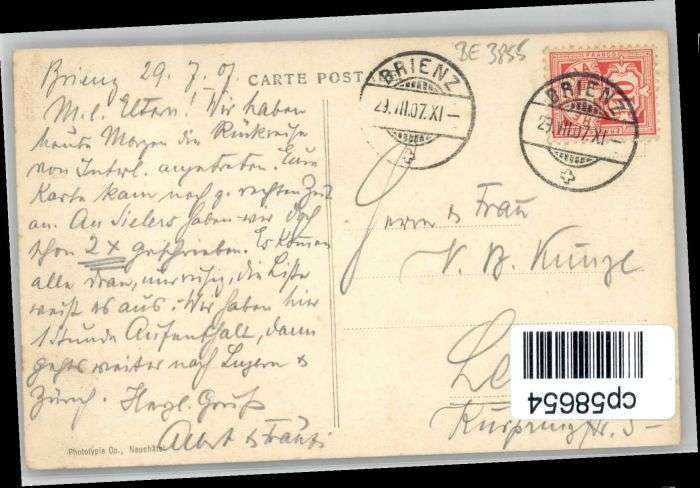 BE 3855
Brienz 29. 7. 07.
CARTE POST
M. l. Eltern! Wir haben
heute Morgen die Rückreise
von Interl. angetreten. Eure
Karte kam noch z. rechten Zeit
an. An Sielers haben wir doch
schon 2x geschrieben. Es kommen
alle dran, nur ruhig, die Liste
weist es aus. Wir haben hier
1 Stunde Aufenthalt, dann
gehts weiter nach Luzern &
Zürich. Herzl. Gruß
Phototypie Co., Neuchâtel
BRIENZ
29.VII.07.XI-
FRANCO
10
BRIENZ
29.VII.07.XI-
Herrn & Frau
Kunze
Le
5-
cp58654